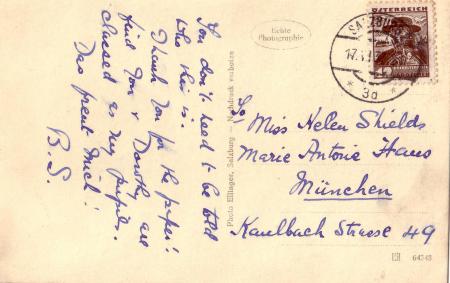 You don't need to be told
who this is.
Thank you for the paper!
find you & Dorothy are
classed as my pupils.
Das freut mich!
B.S.
Echte
Photographie
Photo Ellinger, Salzburg — Nachdruck verboten
ÖSTERREICH
SALZBU
17.
* 3d *
To
Miss Helen Shields
Marie Antonie Haus
München
Kaulbach Strasse 49
64343